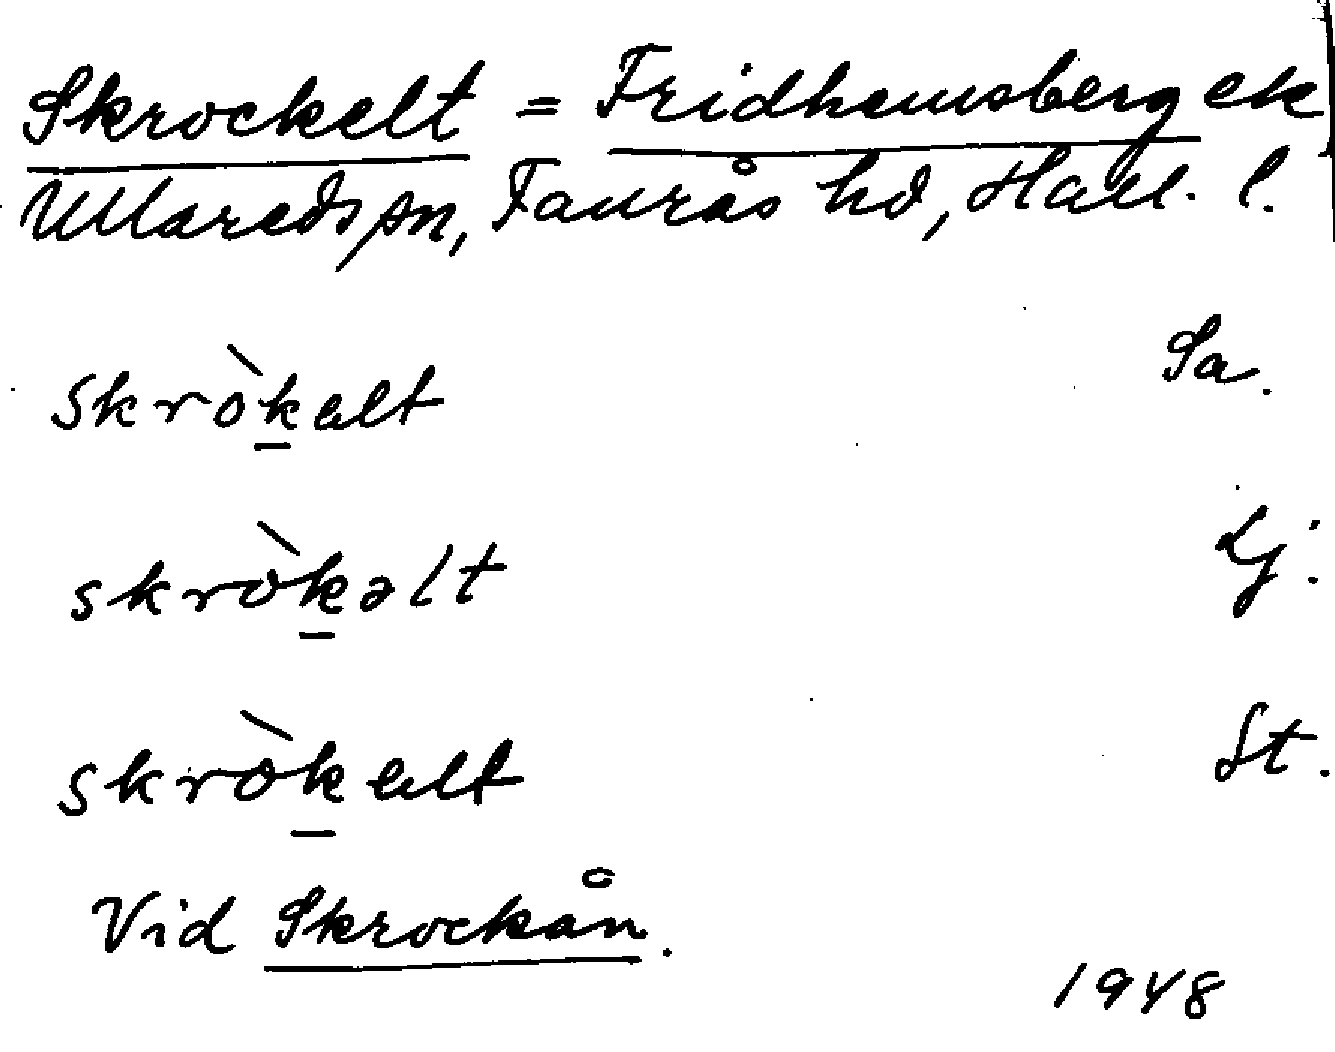 Skrockelt = Fridhemsberg ek
Ullareds sn, Faurås hd, Hall. l.
skròk̲alt Sa.
skròk̲əlt Lj.
skròk̲elt St.
Vid Skrockån.
1948